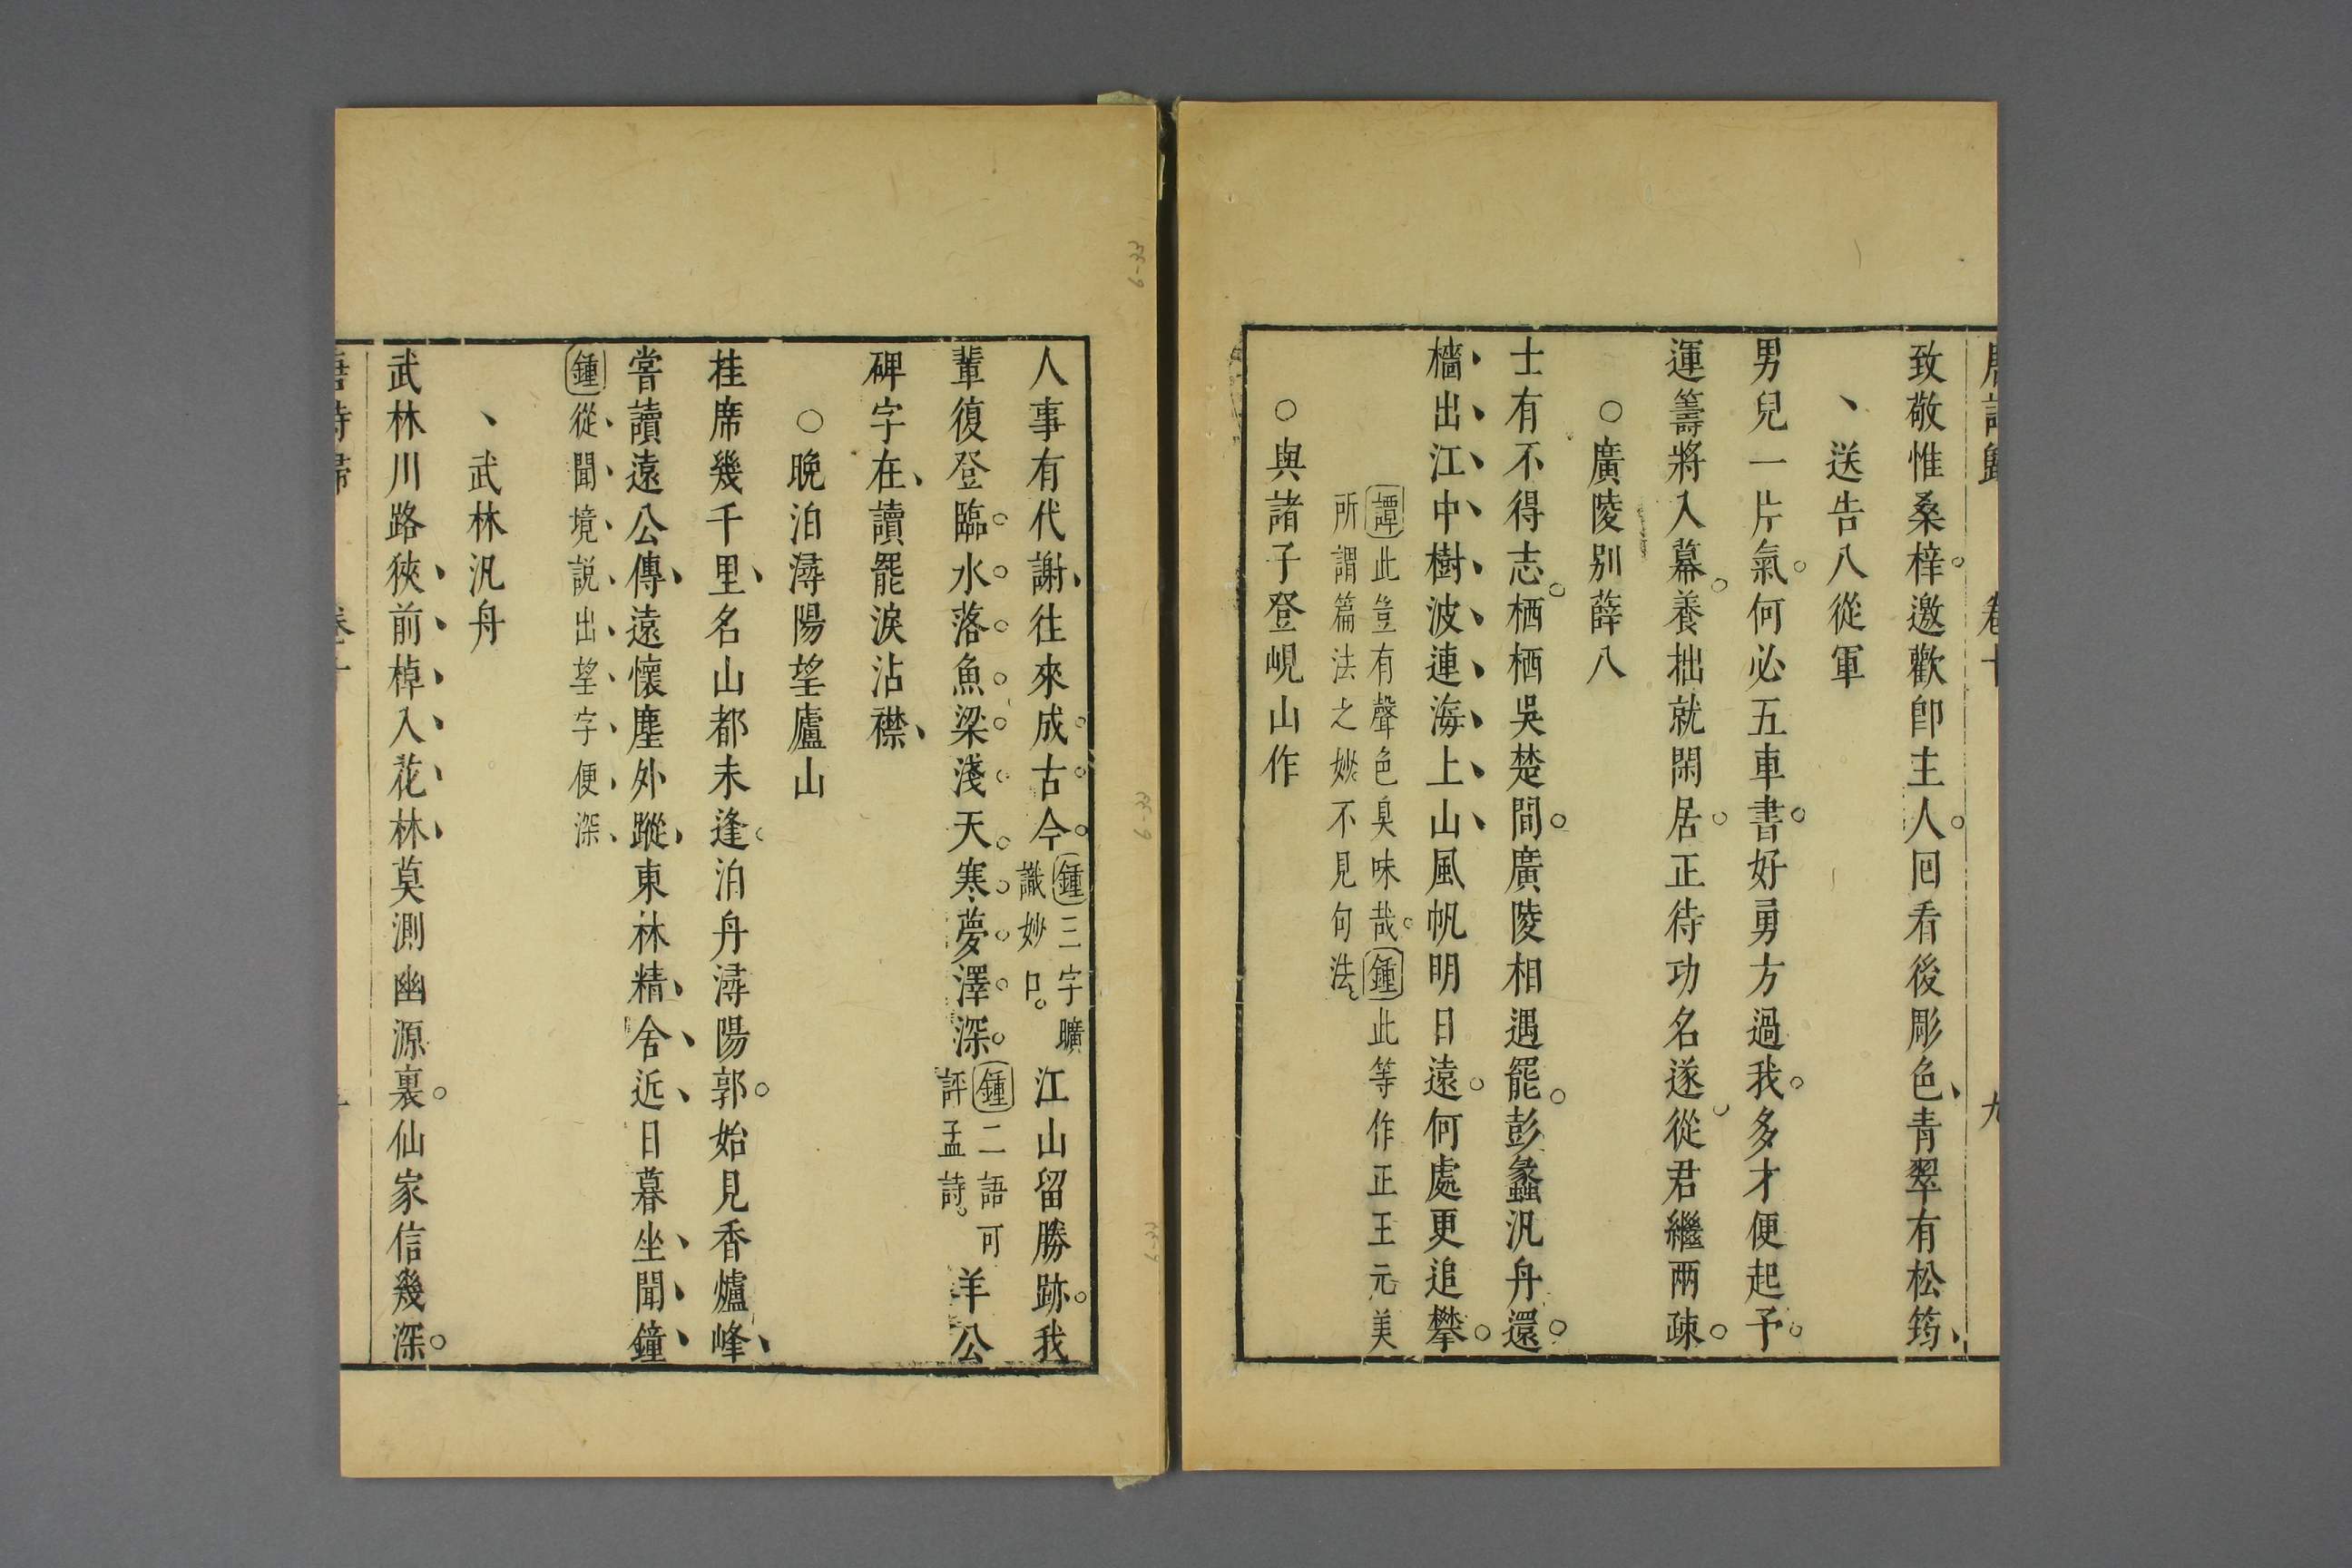 致敬惟桑梓。邀歡卽主人。回看後彫色、青翠有松筠、
、送告八從軍
男兒一片氣。何必五車書。好勇方過我。多才便起予。
運籌將入幕。養拙就閑居。正待功名遂。從君繼兩疎。
○廣陵別薛八
士有不得志。栖栖吳楚間。廣陵相遇罷。彭蠡汎舟還。
檣出江中樹波連海上山風帆明日遠。何處更追攀。
譚此豈有聲色臭味哉。鍾此等作正王元美
所謂篇法之妙不見句法。
○與諸子登峴山作
人事有代謝、往來成古今。鍾三字曠識妙口。江山留勝跡。我
輩復登臨。水落魚梁淺。天寒夢澤深。鍾二語可評孟詩。羊公
碑字在、讀罷淚沾襟、
○晚泊潯陽望廬山
桂席幾千里、名山都未逢。泊舟潯陽郭。始見香爐峰、
嘗讀遠公傳、遠懷塵外蹤、東林精舍近、日暮坐聞鐘
鍾從聞境說出望字便深
、武林汎舟
武林川路狹、前棹入花林、莫測幽源裏。仙家信幾深。